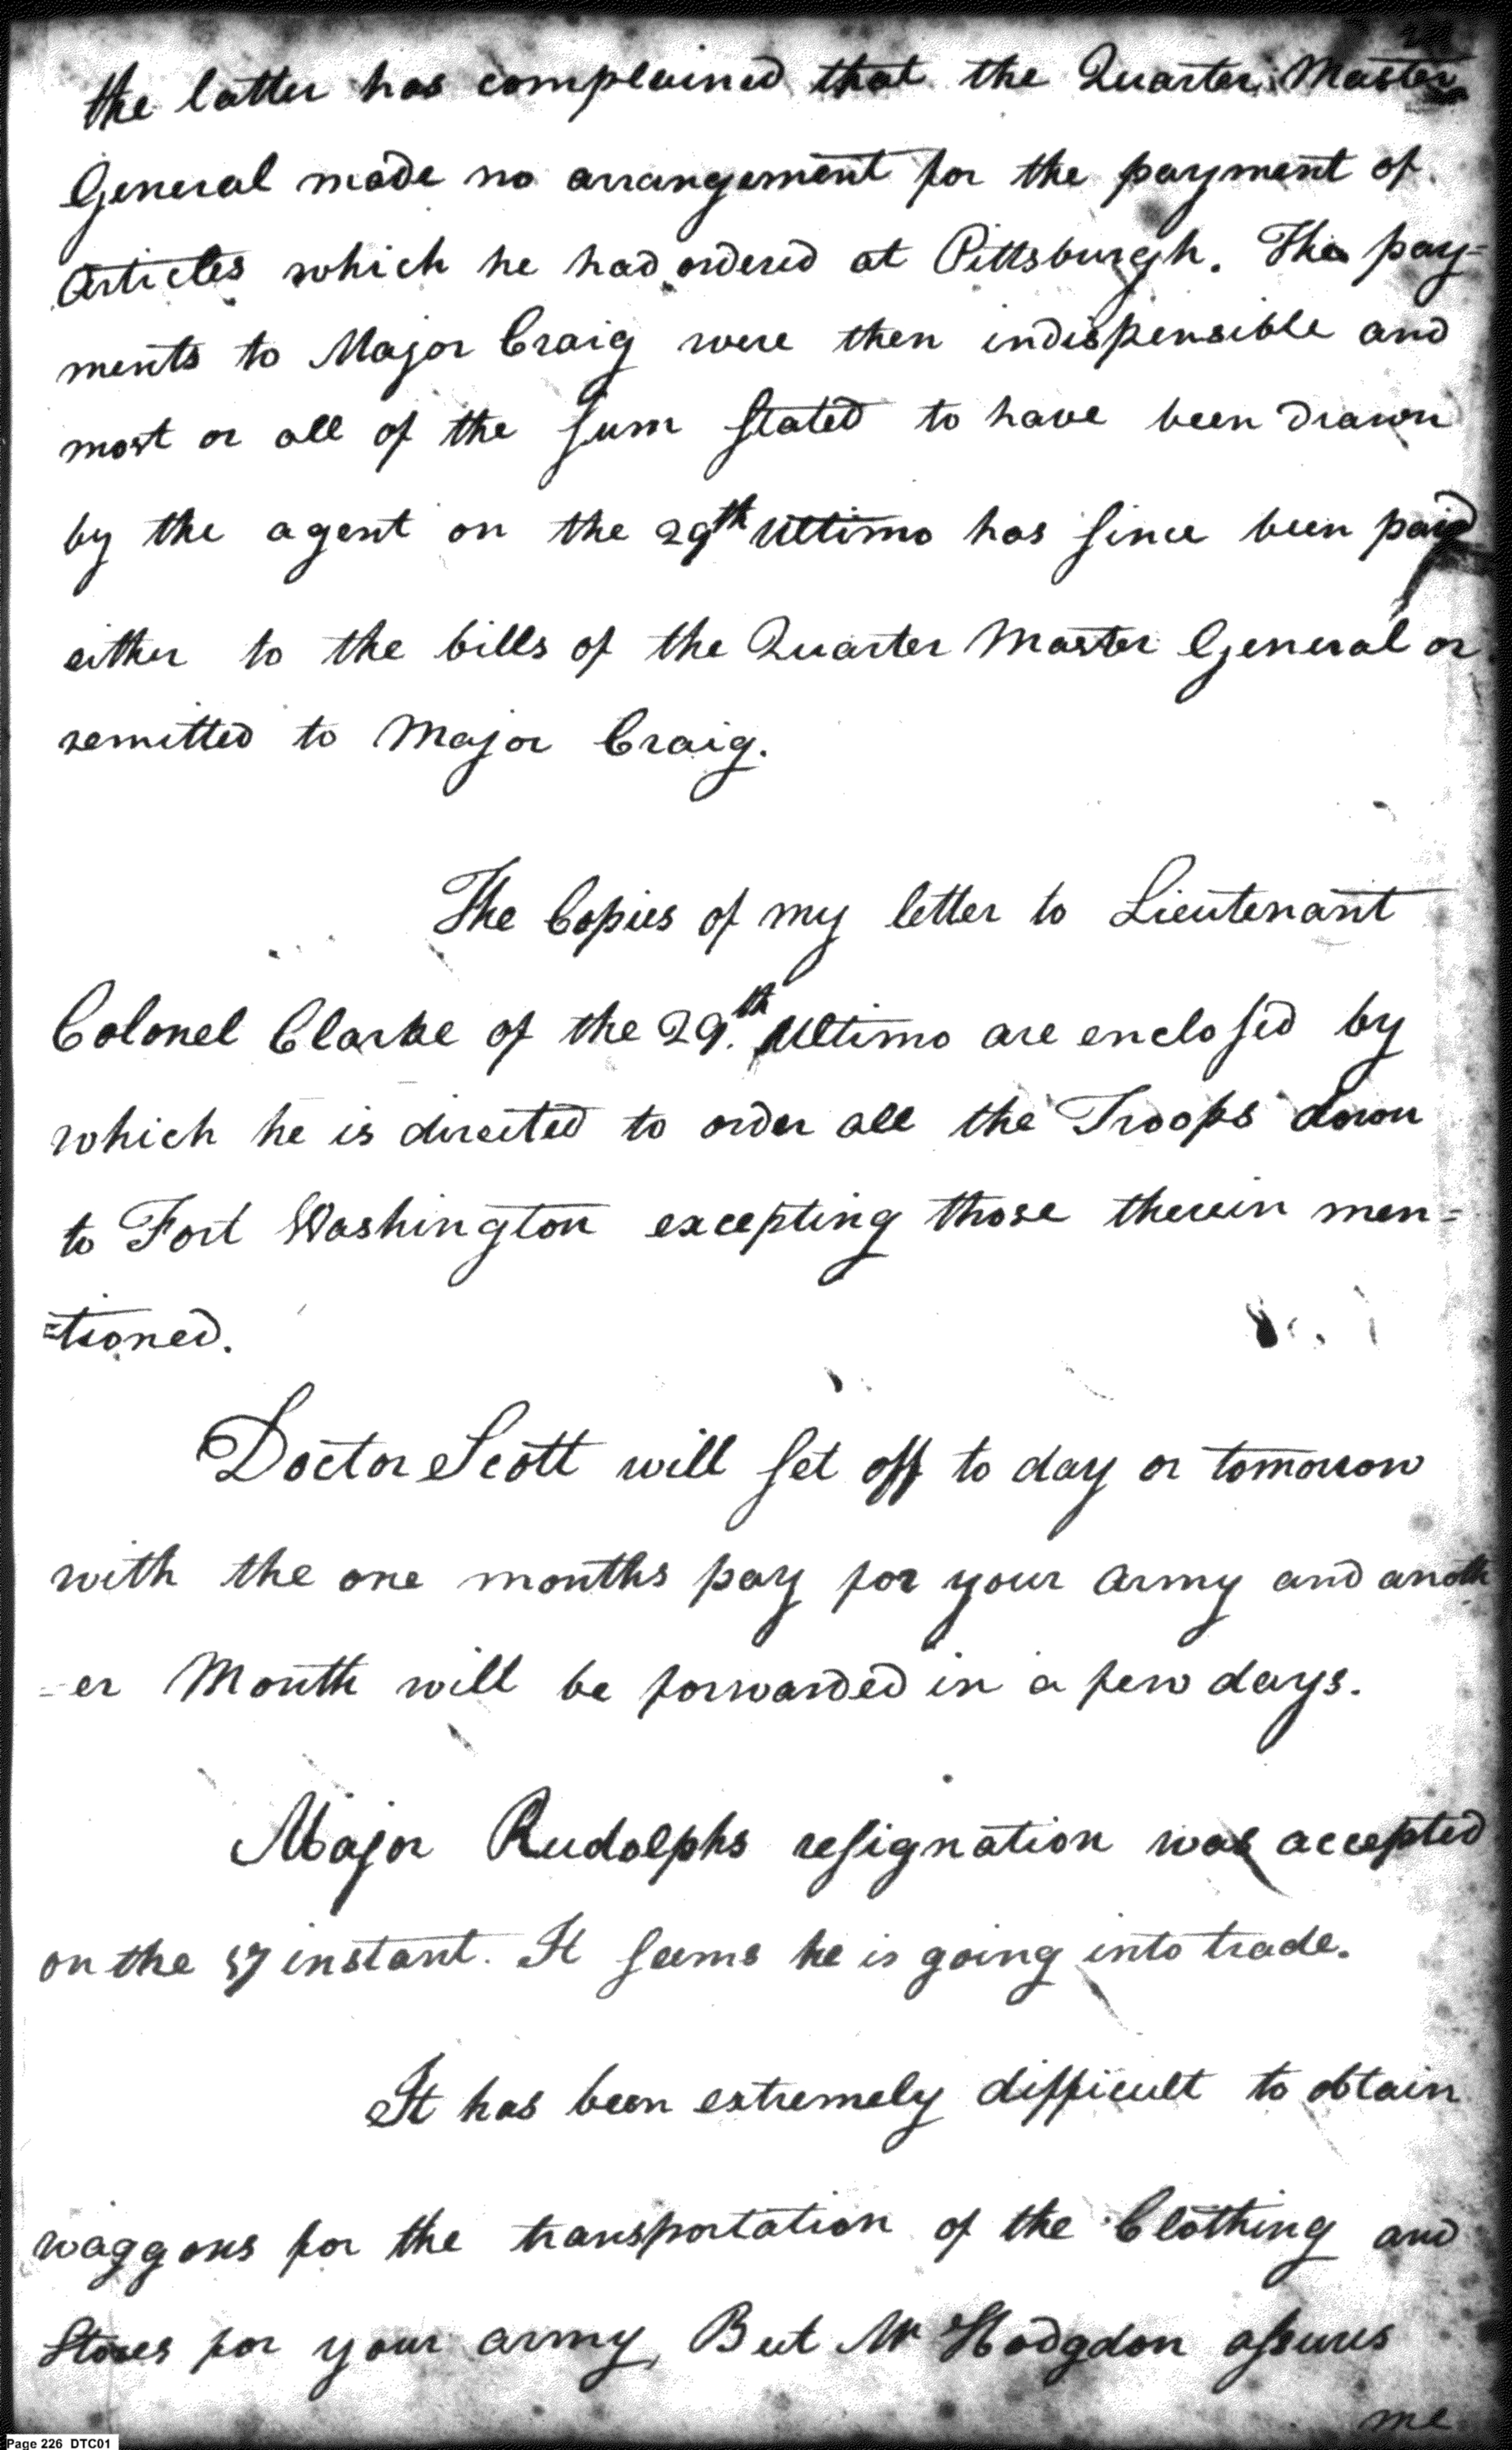 the latter has complained that the Quarter Master
General made no arrangement for the payment of
Articles which he had ordered at Pittsburgh. The pay=
ments to Major Craig were then indispensible and
most or all of the sum stated to have been drawn
by the agent on the 29th Ultimo has since been paid
either to the bills of the Quarter Master General or
remitted to Major Craig.
The Copies of my letter to Lieutenant
Colonel Clarke of the 29.th Ultimo are enclosed by
which he is directed to order all the Troops down
to Fort Washington excepting those therein men=
=tioned.
Doctor Scott will set off to day or tomorrow
with the one months pay for your army and anoth
-er Month will be forwarded in a few days.
Major Rudolphs resignation was accepted
on the instant. It seems he is going into trade.
It has been extremely difficult to obtain
waggons for the transportation of the Clothing and
Stores for your army, But Mr Hodgdon assures
me
Page 226 DTC01